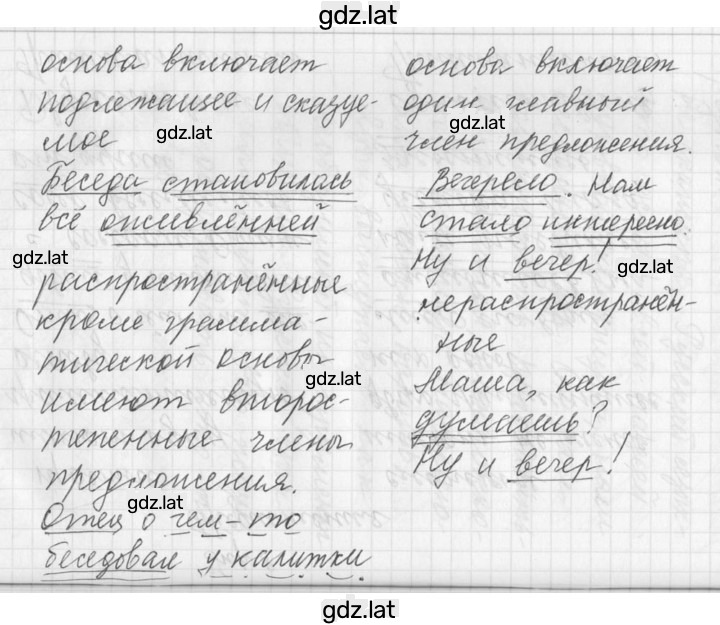 gdz.lat
основа включает
подлежащее и сказуе-
мое
gdz.lat
Беседа становилась
всё оживлённей
gdz.lat
распространённые
кроме грамма-
тической основы
gdz.lat
имеют второс-
тепенные члены
предложения.
gdz.lat
Отец о чем-то
беседовал у калитки.
основа включает
один главный
gdz.lat
член предложения.
Вечерело. Нам
стало интересно.
Ну и вечер!
gdz.lat
нераспространён-
ные
Маша, как
думаешь?
Ну и вечер!
gdz.lat